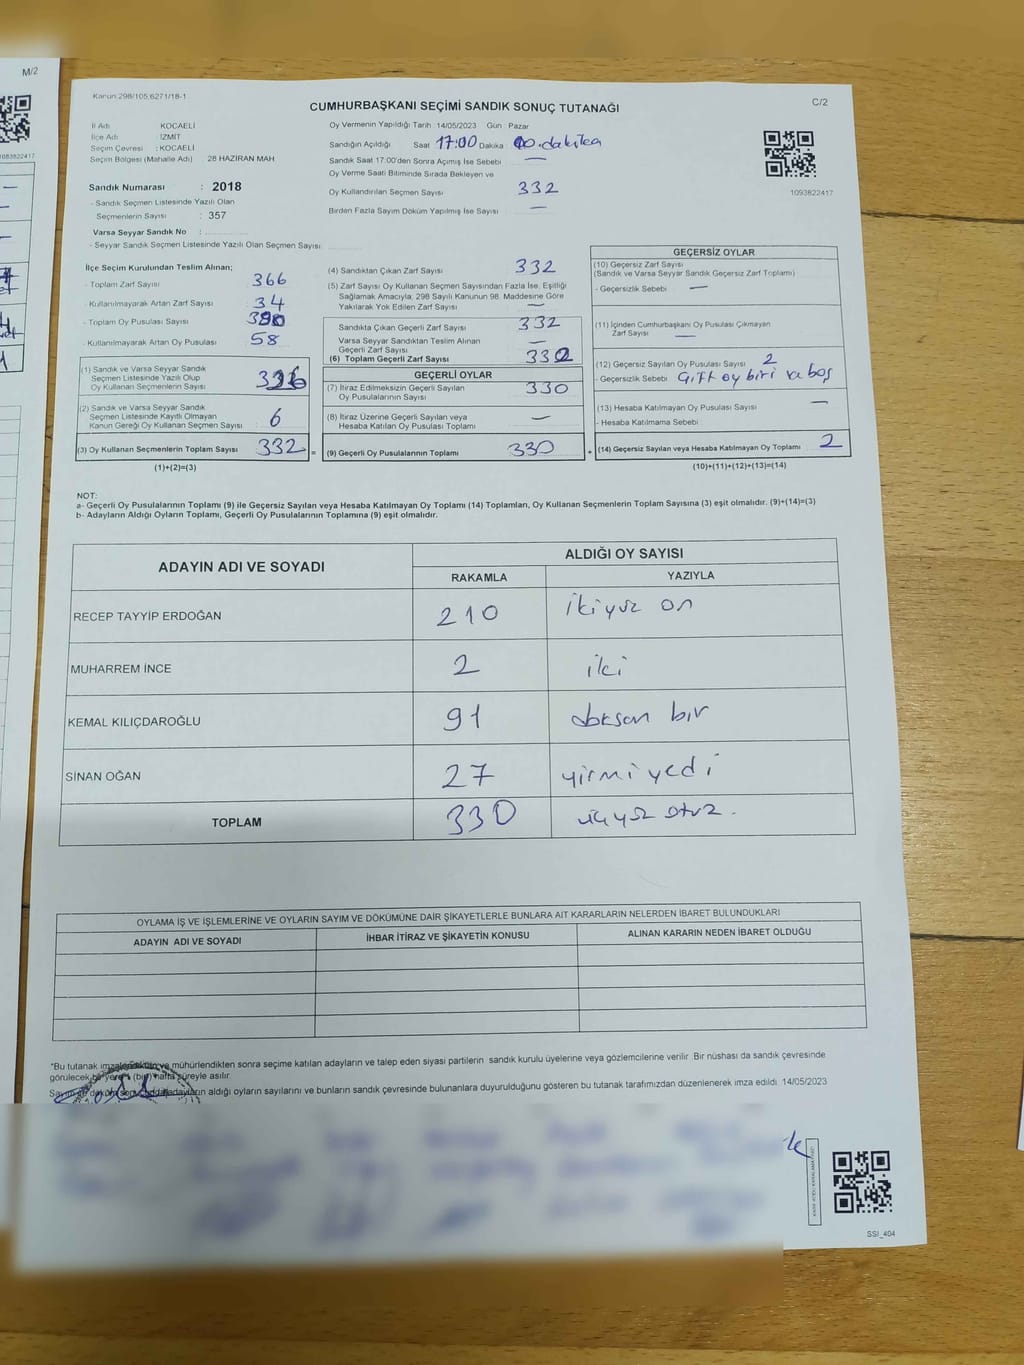 M/2
1083822417
Kanun:298/105,6271/18-1
CUMHURBAŞKANI SEÇİMİ SANDIK SONUÇ TUTANAĞI
C/2
İl Adı : KOCAELİ
İlçe Adı : İZMİT
Seçim Çevresi : KOCAELİ
Seçim Bölgesi (Mahalle Adı) 28 HAZİRAN MAH
Sandık Numarası : 2018
- Sandık Seçmen Listesinde Yazılı Olan
Seçmenlerin Sayısı : 357
Varsa Seyyar Sandık No :
- Seyyar Sandık Seçmen Listesinde Yazılı Olan Seçmen Sayısı:
Oy Vermenin Yapıldığı Tarih :14/05/2023 Gün : Pazar
Sandığın Açıldığı Saat 17:00 Dakika 00.dakika
Sandık Saat 17:00'den Sonra Açımış İse Sebebi —
Oy Verme Saati Bitiminde Sırada Bekleyen ve
Oy Kullandırılan Seçmen Sayısı 332
Birden Fazla Sayım Döküm Yapılmış İse Sayısı —
1093822417
İlçe Seçim Kurulundan Teslim Alınan;
- Toplam Zarf Sayısı 366
- Kullanılmayarak Artan Zarf Sayısı 34
- Toplam Oy Pusulası Sayısı 390
- Kullanılmayarak Artan Oy Pusulası 58
(1) Sandık ve Varsa Seyyar Sandık
Seçmen Listesinde Yazılı Olup
Oy Kullanan Seçmenlerin Sayısı 326
(2) Sandık ve Varsa Seyyar Sandık
Seçmen Listesinde Kayıtlı Olmayan
Kanun Gereği Oy Kullanan Seçmen Sayısı 6
(3) Oy Kullanan Seçmenlerin Toplam Sayısı 332 =
(1)+(2)=(3)
(4) Sandıktan Çıkan Zarf Sayısı 332
(5) Zarf Sayısı Oy Kullanan Seçmen Sayısından Fazla İse, Eşitliği
Sağlamak Amacıyla, 298 Sayılı Kanunun 98. Maddesine Göre
Yakılarak Yok Edilen Zarf Sayısı —
Sandıkta Çıkan Geçerli Zarf Sayısı 332
Varsa Seyyar Sandıktan Teslim Alınan
Geçerli Zarf Sayısı —
(6) Toplam Geçerli Zarf Sayısı 332
GEÇERLİ OYLAR
(7) İtiraz Edilmeksizin Geçerli Sayılan
Oy Pusulalarının Sayısı 330
(8) İtiraz Üzerine Geçerli Sayılan veya
Hesaba Katılan Oy Pusulası Toplamı —
(9) Geçerli Oy Pusulalarının Toplamı 330 +
GEÇERSİZ OYLAR
(10) Geçersiz Zarf Sayısı
(Sandık ve Varsa Seyyar Sandık Geçersiz Zarf Toplamı)
- Geçersizlik Sebebi : —
(11) İçinden Cumhurbaşkanı Oy Pusulası Çıkmayan
Zarf Sayısı —
(12) Geçersiz Sayılan Oy Pusulası Sayısı 2
- Geçersizlik Sebebi : Çift oy biri va boş
(13) Hesaba Katılmayan Oy Pusulası Sayısı —
- Hesaba Katılmama Sebebi :
(14) Geçersiz Sayılan veya Hesaba Katılmayan Oy Toplamı 2
(10)+(11)+(12)+(13)=(14)
NOT:
a- Geçerli Oy Pusulalarının Toplamı (9) ile Geçersiz Sayılan veya Hesaba Katılmayan Oy Toplamı (14) Toplamları, Oy Kullanan Seçmenlerin Toplam Sayısına (3) eşit olmalıdır. (9)+(14)=(3)
b- Adayların Aldığı Oyların Toplamı, Geçerli Oy Pusulalarının Toplamına (9) eşit olmalıdır.
ADAYIN ADI VE SOYADI
ALDIĞI OY SAYISI
RAKAMLA YAZIYLA
RECEP TAYYİP ERDOĞAN 210 ikiyüz on
MUHARREM İNCE 2 iki
KEMAL KILIÇDAROĞLU 91 doksan bir
SİNAN OĞAN 27 yirmiyedi
TOPLAM 330 üçyüz otuz.
OYLAMA İŞ VE İŞLEMLERİNE VE OYLARIN SAYIM VE DÖKÜMÜNE DAİR ŞİKAYETLERLE BUNLARA AİT KARARLARIN NELERDEN İBARET BULUNDUKLARI
ADAYIN ADI VE SOYADI İHBAR İTİRAZ VE ŞİKAYETİN KONUSU ALINAN KARARIN NEDEN İBARET OLDUĞU
*Bu tutanak ve mühürlendikten sonra seçime katılan adayların ve talep eden siyasi partilerin sandık kurulu üyelerine veya gözlemcilerine verilir. Bir nüshası da sandık çevresinde
görülecek bir yere (bir) hafta süreyle asılır.
aldığı oyların sayılarını ve bunların sandık çevresinde bulunanlara duyurulduğunu gösteren bu tutanak tarafımızdan düzenlenerek imza edildi. 14/05/2023
SSI_404